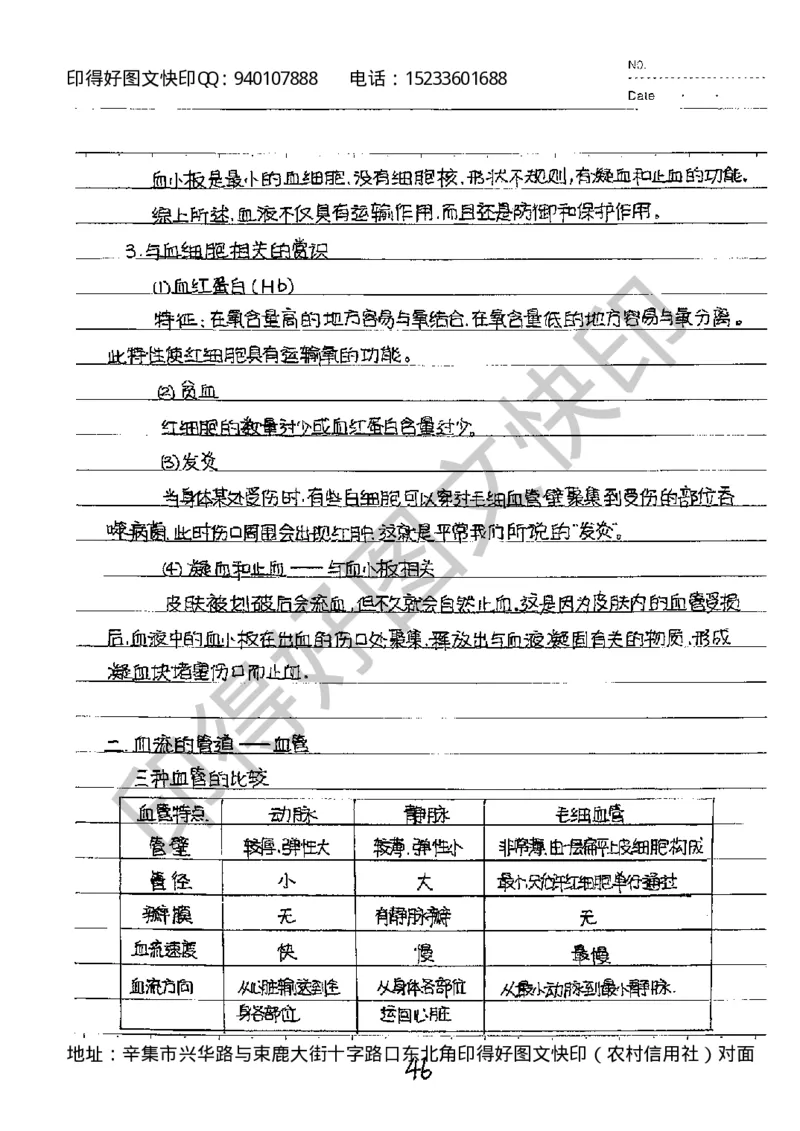 印得好图文快印QQ：940107888 电话：15233601688
NO.
Date
血小板是最小的血细胞,没有细胞核,形状不规则,有凝血和止血的功能。
综上所述,血液不仅具有运输作用,而且还是防御和保护作用。
3.与血细胞相关的常识
(1)血红蛋白(Hb)
特征:在氧含量高的地方容易与氧结合,在氧含量低的地方容易与氧分离。
此特性使红细胞具有运输氧的功能。
(2)贫血
红细胞的数量过少或血红蛋白含量过少。
(3)发炎
当身体某处受伤时,有些白细胞可以穿过毛细血管壁聚集到受伤的部位吞
噬病菌,此时伤口周围会出现红肿,这就是平常我们所说的"发炎"。
(4)凝血和止血——与血小板相关
皮肤被划破后会流血,但不久就会自然止血,这是因为皮肤内的血管受损
后,血液中的血小板在出血的伤口处聚集,释放出与血液凝固有关的物质,形成
凝血块堵塞伤口而止血.
二.血流的管道——血管
三种血管的比较
血管特点 动脉 静脉 毛细血管
管壁 较厚,弹性大 较薄,弹性小 非常薄,由一层扁平上皮细胞构成
管径 小 大 最小,只允许红细胞单行通过
瓣膜 无 有静脉瓣 无
血流速度 快 慢 最慢
血流方向 从心脏输送到全 从身体各部位 从最小动脉到最小静脉.
身各部位 运回心脏
地址：辛集市兴华路与束鹿大街十字路口东北角印得好图文快印（农村信用社）对面
46
印得好图文快印